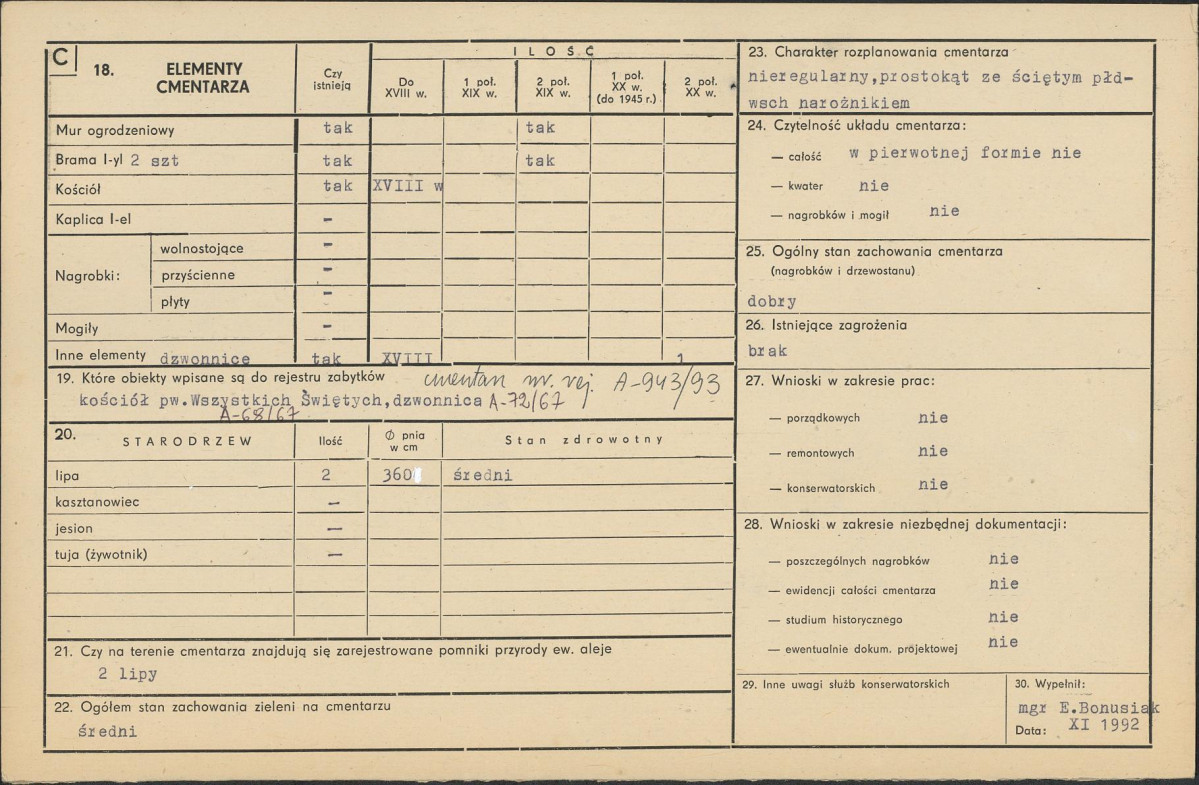 C
18. ELEMENTY CMENTARZA
Czy istnieją
ILOŚĆ
Do XVIII w.
1 poł. XIX w.
2 poł. XIX w.
1 poł. XX w. (do 1945 r.)
2 poł. XX w.
Mur ogrodzeniowy tak tak
Brama I-yl 2 szt tak tak
Kościół tak XVIII w
Kaplica I-el –
Nagrobki:
wolnostojące –
przyścienne –
płyty –
Mogiły –
Inne elementy dzwonnice tak XVIII 1
19. Które obiekty wpisane są do rejestru zabytków cmentarz nr. rej. A-943/93
kościół pw.Wszystkich Świętych,dzwonnica A-72/67
A-68/67
20. STARODRZEW Ilość Ø pnia w cm Stan zdrowotny
lipa 2 360 średni
kasztanowiec –
jesion –
tuja (żywotnik) –
21. Czy na terenie cmentarza znajdują się zarejestrowane pomniki przyrody ew. aleje
2 lipy
22. Ogółem stan zachowania zieleni na cmentarzu
średni
23. Charakter rozplanowania cmentarza
nieregularny,prostokąt ze ściętym płd-
wsch narożnikiem
24. Czytelność układu cmentarza:
— całość w pierwotnej formie nie
— kwater nie
— nagrobków i mogił nie
25. Ogólny stan zachowania cmentarza
(nagrobków i drzewostanu)
dobry
26. Istniejące zagrożenia
brak
27. Wnioski w zakresie prac:
— porządkowych nie
— remontowych nie
— konserwatorskich nie
28. Wnioski w zakresie niezbędnej dokumentacji:
— poszczególnych nagrobków nie
— ewidencji całości cmentarza nie
— studium historycznego nie
— ewentualnie dokum. projektowej nie
29. Inne uwagi służb konserwatorskich
30. Wypełnił:
mgr E.Bonusiak
Data: XI 1992